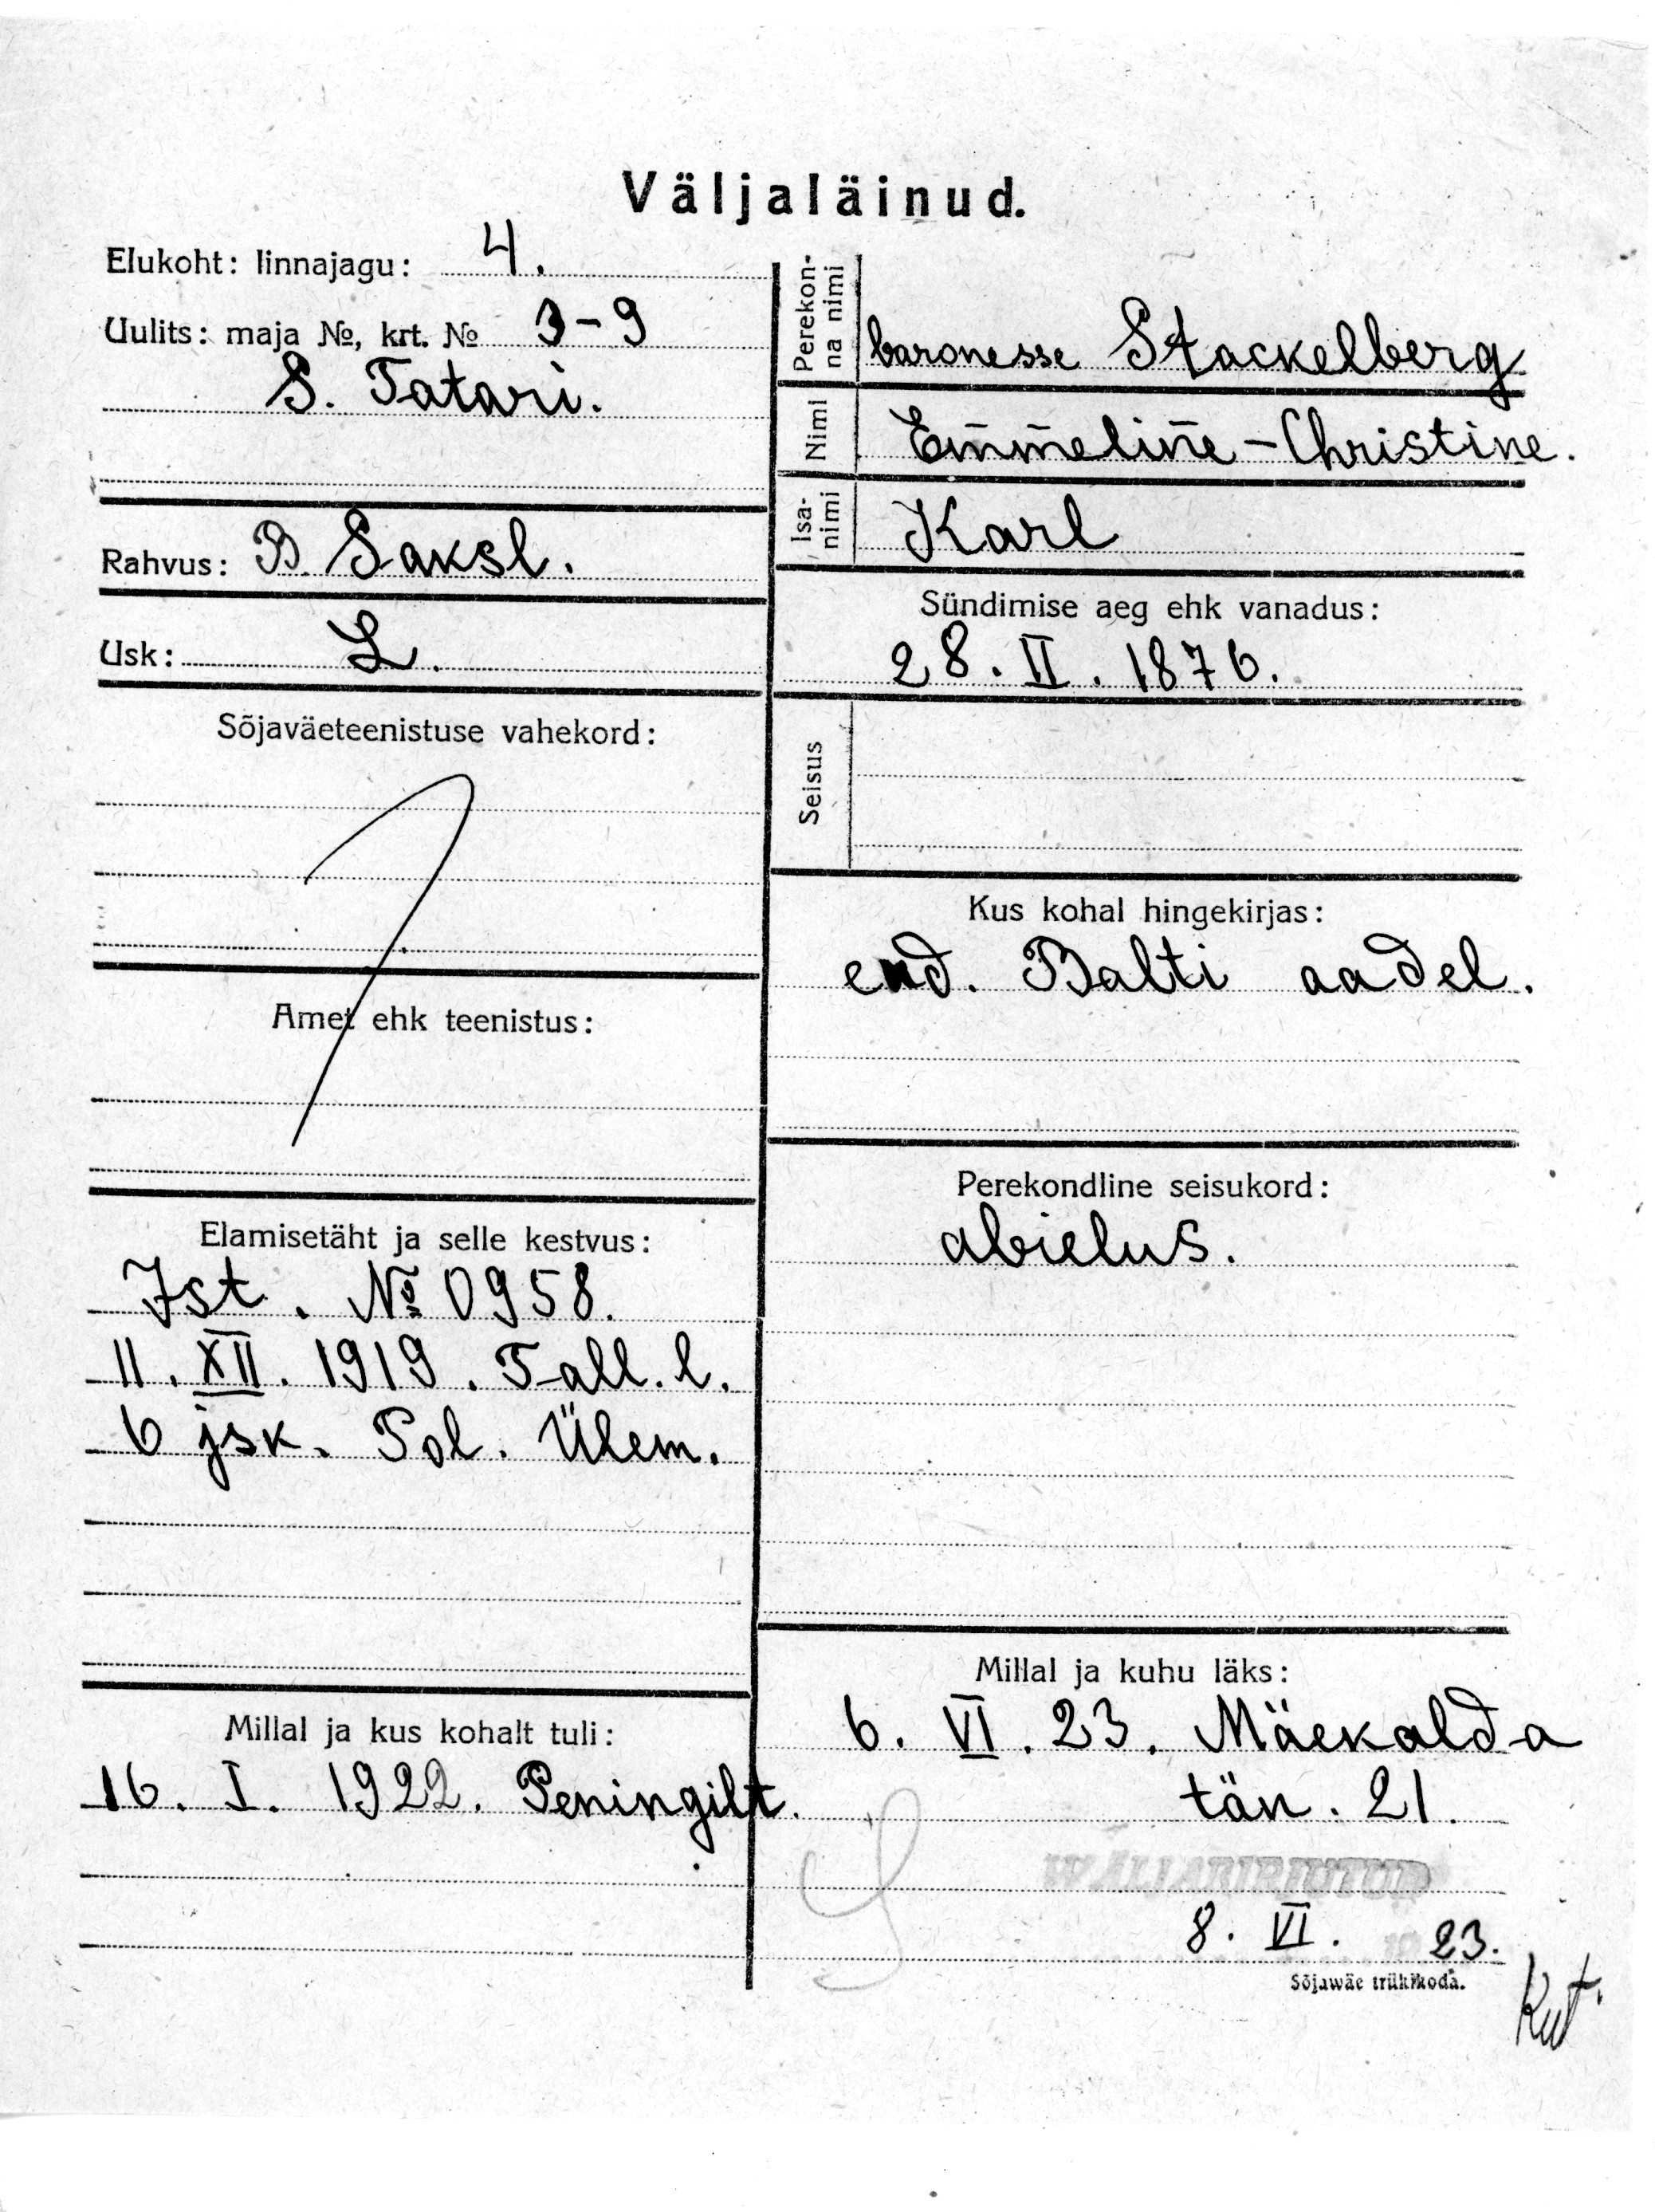 Väljaläinud.
Elukoht: linnajagu: 4.
Uulits: maja №, krt. № 3-9
S. Tatari.
Rahvus: B. Saksl.
Usk: L.
Sõjaväeteenistuse vahekord:
Amet ehk teenistus:
Elamisetäht ja selle kestvus:
Ist. № 0958.
11. XII. 1919. Tall. l.
6 jsk. Pol. Ülem.
Millal ja kus kohalt tuli:
16. I. 1922. Peningilt.
Perekon-
na nimi
baronesse Stackelberg
Nimi
Emmeline-Christine.
Isa-
nimi
Karl
Sündimise aeg ehk vanadus:
28. II. 1876.
Seisus
Kus kohal hingekirjas:
end. Balti aadel.
Perekondline seisukord:
abielus.
Millal ja kuhu läks:
6. VI. 23. Mäekalda
tän. 21.
8. VI. 1923.
Sõjawäe trükikoda.